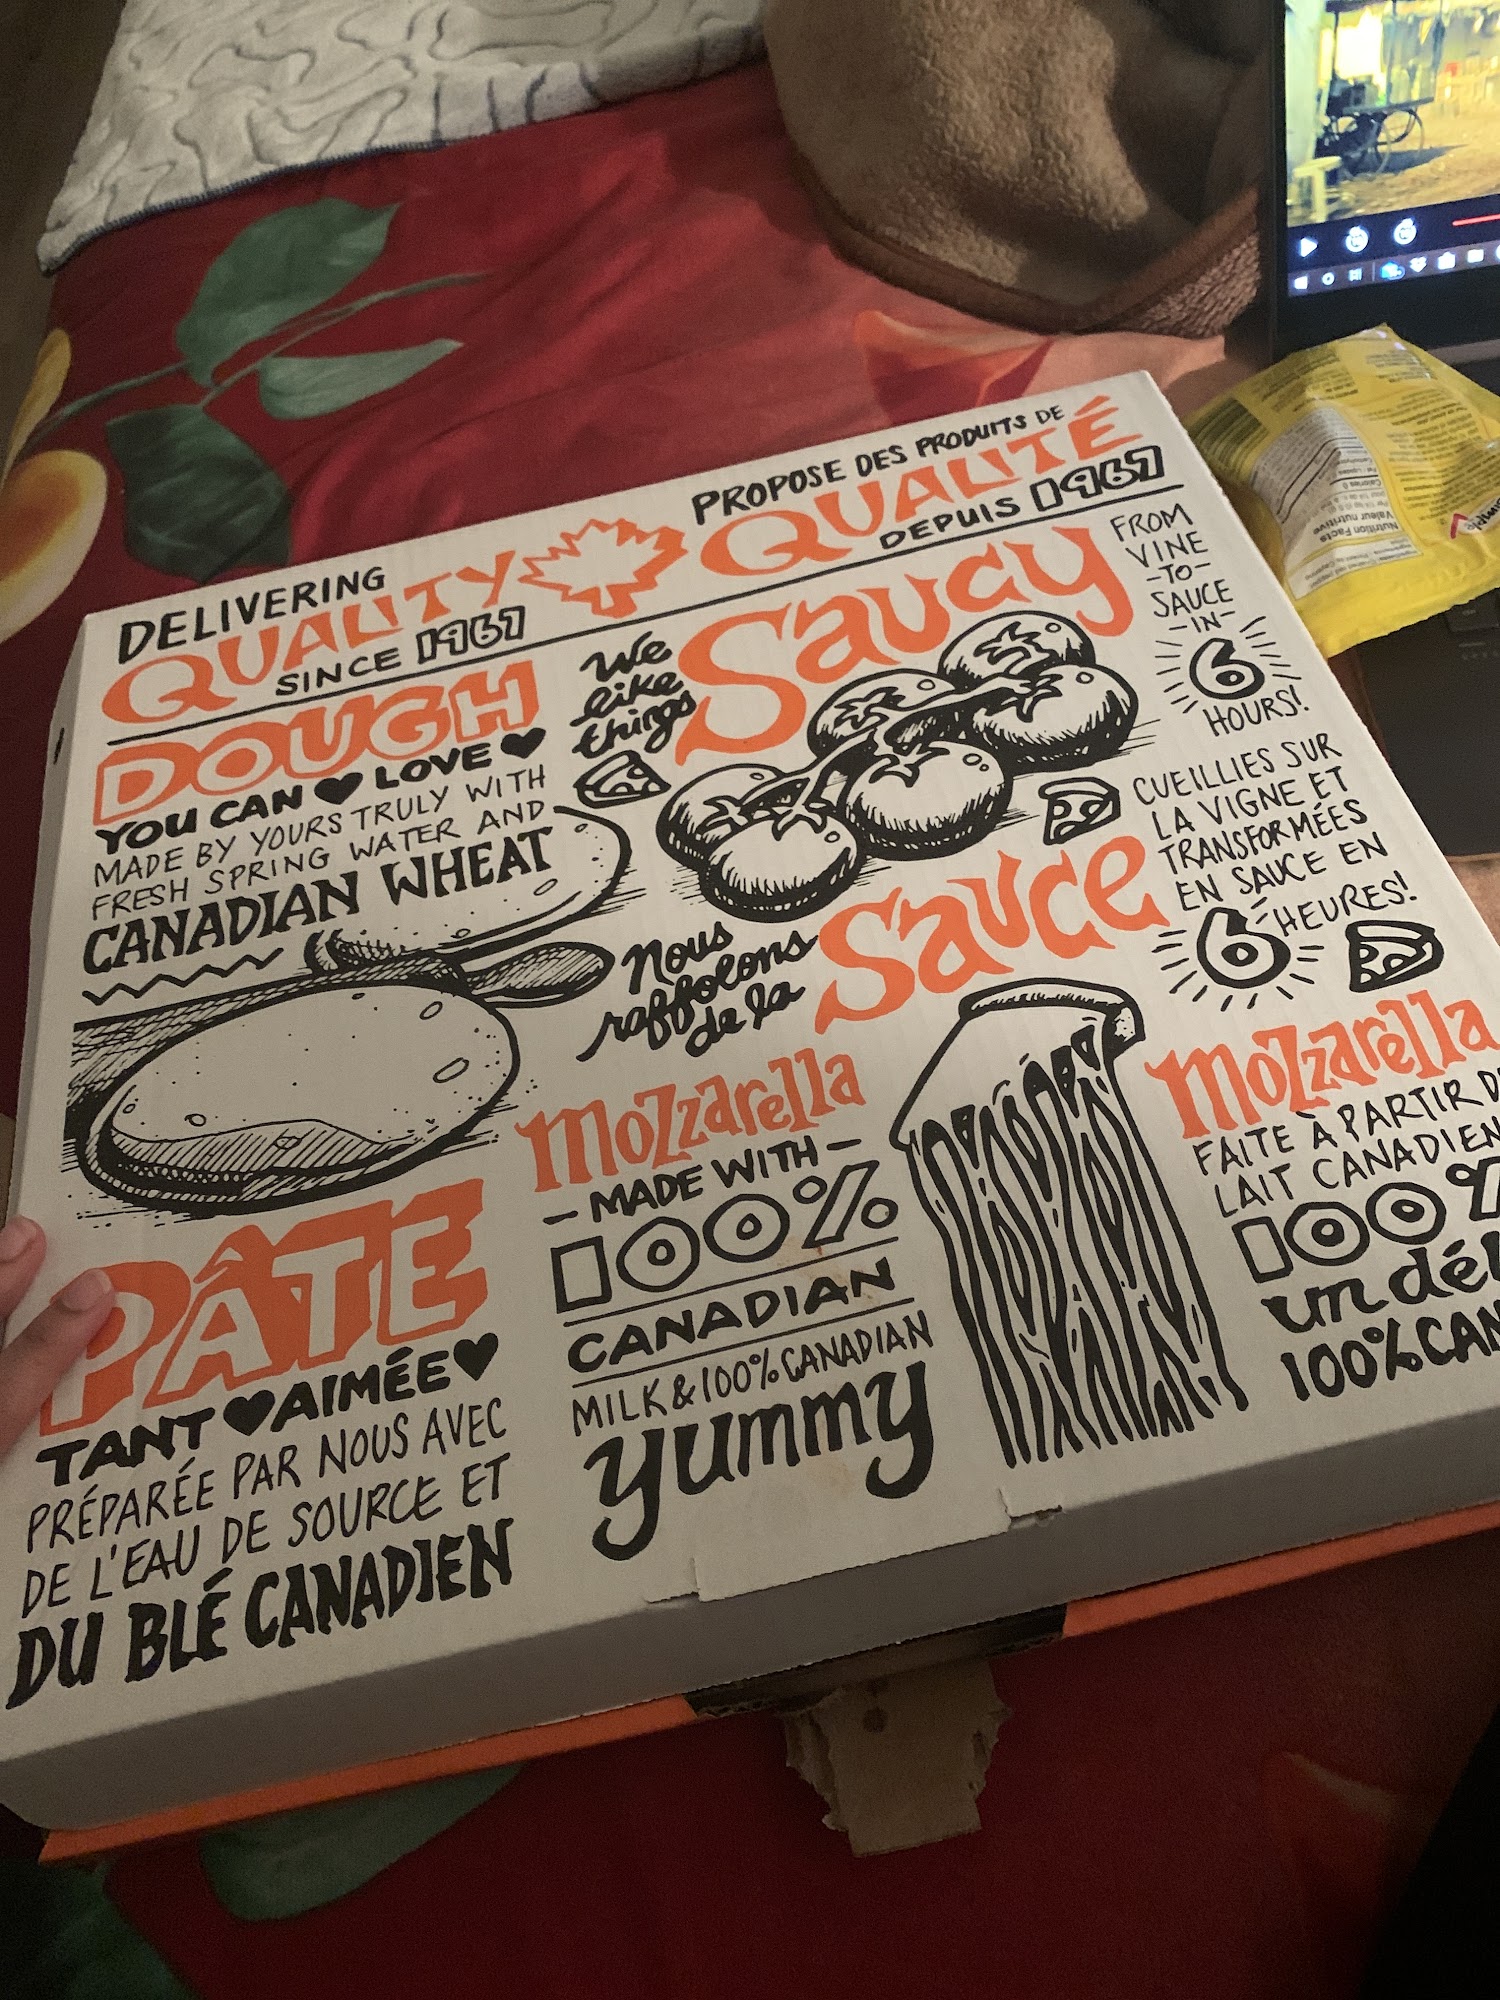 DELIVERING
QUALITY
SINCE 1967
PROPOSE DES PRODUITS DE
QUALITÉ
DEPUIS 1967
DOUGH
YOU CAN LOVE
MADE BY YOURS TRULY WITH
FRESH SPRING WATER AND
CANADIAN WHEAT
We
like
things
Saucy
FROM
VINE
-TO-
SAUCE
-IN-
6
HOURS!
CUEILLIES SUR
LA VIGNE ET
TRANSFORMÉES
EN SAUCE EN
6 HEURES!
Nous
raffolons
de la
Sauce
PÂTE
TANT AIMÉE
PRÉPARÉE PAR NOUS AVEC
DE L'EAU DE SOURCE ET
DU BLÉ CANADIEN
Mozzarella
- MADE WITH -
100%
CANADIAN
MILK & 100% CANADIAN
yummy
Mozzarella
FAITE À PARTIR D
LAIT CANADIEN
100%
un dél
100% CAN
Nutrition Facts
Valeur nutritive
Calories